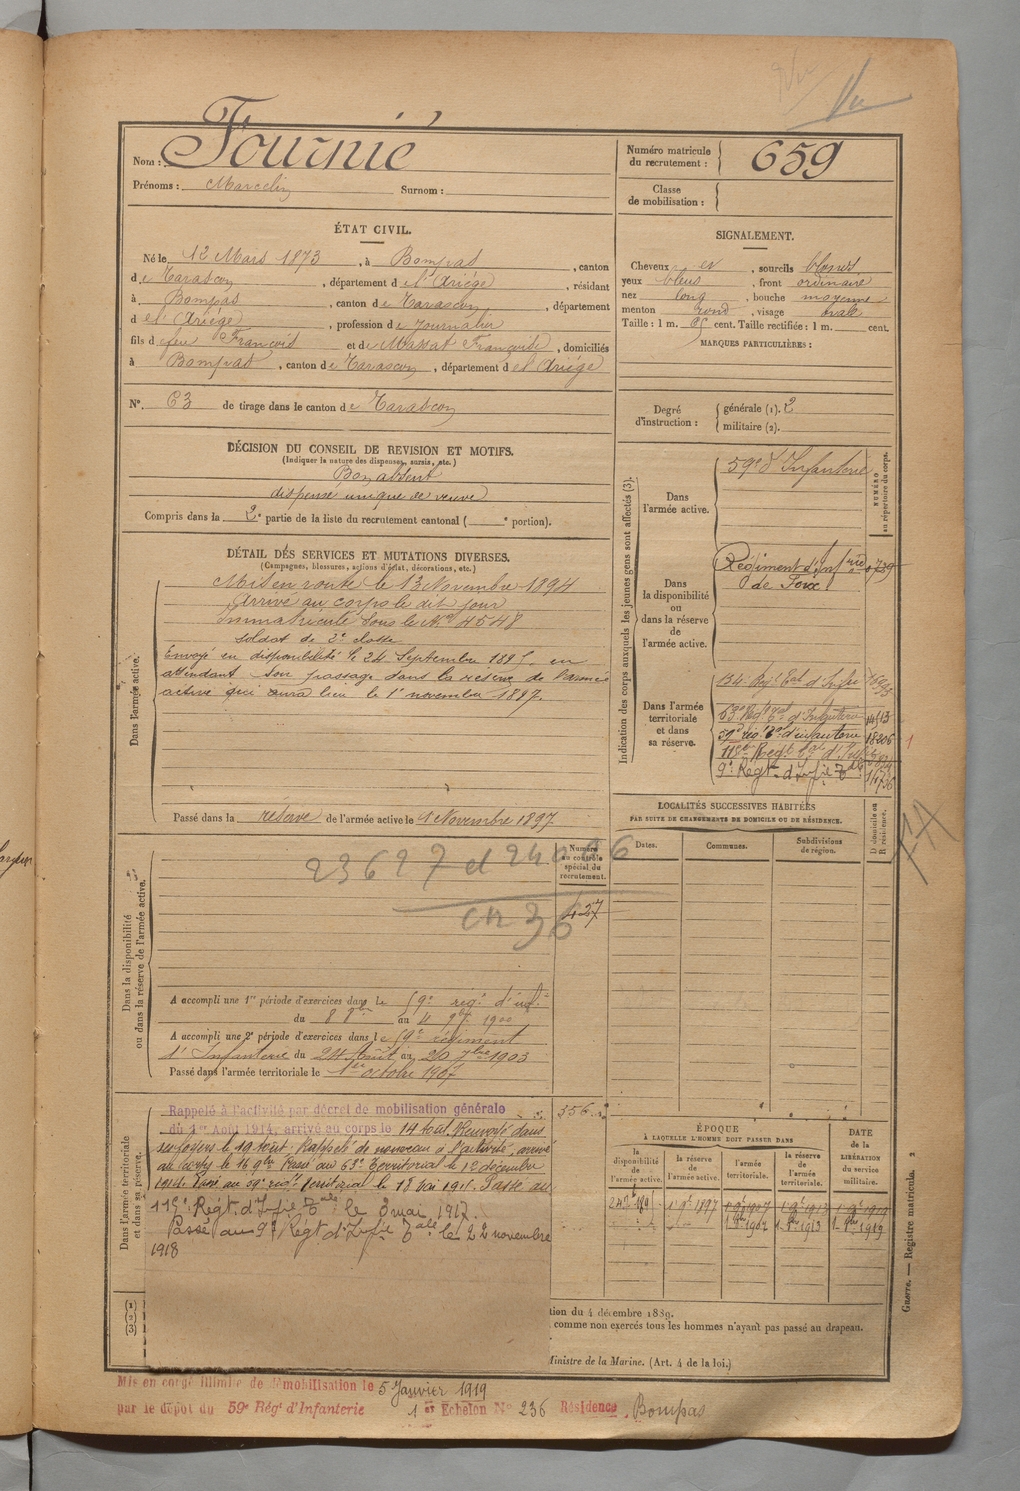 Vu
Nom : Fournié
Prénoms : Marcelin Surnom :
Numéro matricule du recrutement : 659
Classe de mobilisation :
ÉTAT CIVIL.
Né le 12 Mars 1873, à Bompas, canton
de Tarascon, département de l'Ariège, résidant
à Bompas, canton de Tarascon, département
de l'Ariège, profession de journalier
fils de feu François et de Massat Françoise, domiciliés
à Bompas, canton de Tarascon, département de l'Ariège
N° 63 de tirage dans le canton de Tarascon
SIGNALEMENT.
Cheveux et, sourcils blonds
yeux bleus, front ordinaire
nez long, bouche moyenne
menton rond, visage ovale
Taille : 1 m. cent. Taille rectifiée : 1 m. cent.
MARQUES PARTICULIÈRES :
Degré d'instruction : générale (1). 2
militaire (2).
DÉCISION DU CONSEIL DE REVISION ET MOTIFS.
(Indiquer la nature des dispenses, sursis, etc.)
Bon absent
dispensé unique de veuve
Compris dans la 2e partie de la liste du recrutement cantonal ( e portion).
DÉTAIL DES SERVICES ET MUTATIONS DIVERSES.
(Campagnes, blessures, actions d'éclat, décorations, etc.)
Dans l'armée active.
Mis en route le 13 Novembre 1894
Arrivé au corps le dit jour
Immatriculé sous le No 4548
soldat de 2e classe
Envoyé en disponibilité le 24 Septembre 1895 en
attendant son passage dans la réserve de l'armée
active qui aura lieu le 1er novembre 1897.
Passé dans la réserve de l'armée active le 1 Novembre 1897
Indication des corps auxquels les jeunes gens sont affectés (3).
NUMÉRO au répertoire du corps.
Dans l'armée active.
59e d'Infanterie
Dans la disponibilité ou dans la réserve de l'armée active.
Régiment d'Infrie 0739
de Foix
Dans l'armée territoriale et dans sa réserve.
134 Regt Tal d'Infie
63e Regt Tal d'Infanterie 14513
59e reg. Tal d'infanterie 18206
115e Regt Tal d'Inf
9e Régt d'Infie Tale
LOCALITÉS SUCCESSIVES HABITÉES
PAR SUITE DE CHANGEMENTS DE DOMICILE OU DE RÉSIDENCE.
Dates. Communes. Subdivisions de région. D domicile ou R résidence.
Dans la disponibilité ou dans la réserve de l'armée active.
Numéro au contrôle spécial du recrutement.
437
A accompli une 1re période d'exercices dans le 59e reg. d'inf.
du 8 8bre au 4 9bre 1900
A accompli une 2e période d'exercices dans le 59e régiment
d'Infanterie du 24 Août au 20 7bre 1903
Passé dans l'armée territoriale le 1er octobre 1907
Dans l'armée territoriale et dans sa réserve.
Rappelé à l'activité par décret de mobilisation générale
du 1er Août 1914, arrivé au corps le 14 août. Renvoyé dans
ses foyers le 19 août. Rappelé de nouveau à l'activité, arrivé
au corps le 16 9bre Passé au 63e Territorial le 12 décembre
1914. Passé au 59e regt territorial le 18 Passé au
115e Régt. d'Infie Tale le 3 mai 1917.
Passé au 9e Régt d'Infie Tale le 22 novembre
1918
356
ÉPOQUE
À LAQUELLE L'HOMME DOIT PASSER DANS
DATE de la LIBÉRATION du service militaire.
la disponibilité de l'armée active. la réserve de l'armée active. l'armée territoriale. la réserve de l'armée territoriale.
1er 9bre 1897
(1)
(2)
(3)
tion du 4 décembre 1889.
comme non exercés tous les hommes n'ayant pas passé au drapeau.
Ministre de la Marine. (Art. 4 de la loi.)
Guerre. — Registre matricule. 2
Mis en congé illimité de démobilisation le 5 Janvier 1919
par le dépôt du 59e Régt d'Infanterie 1er Echelon N° 236 Résidence Bompas